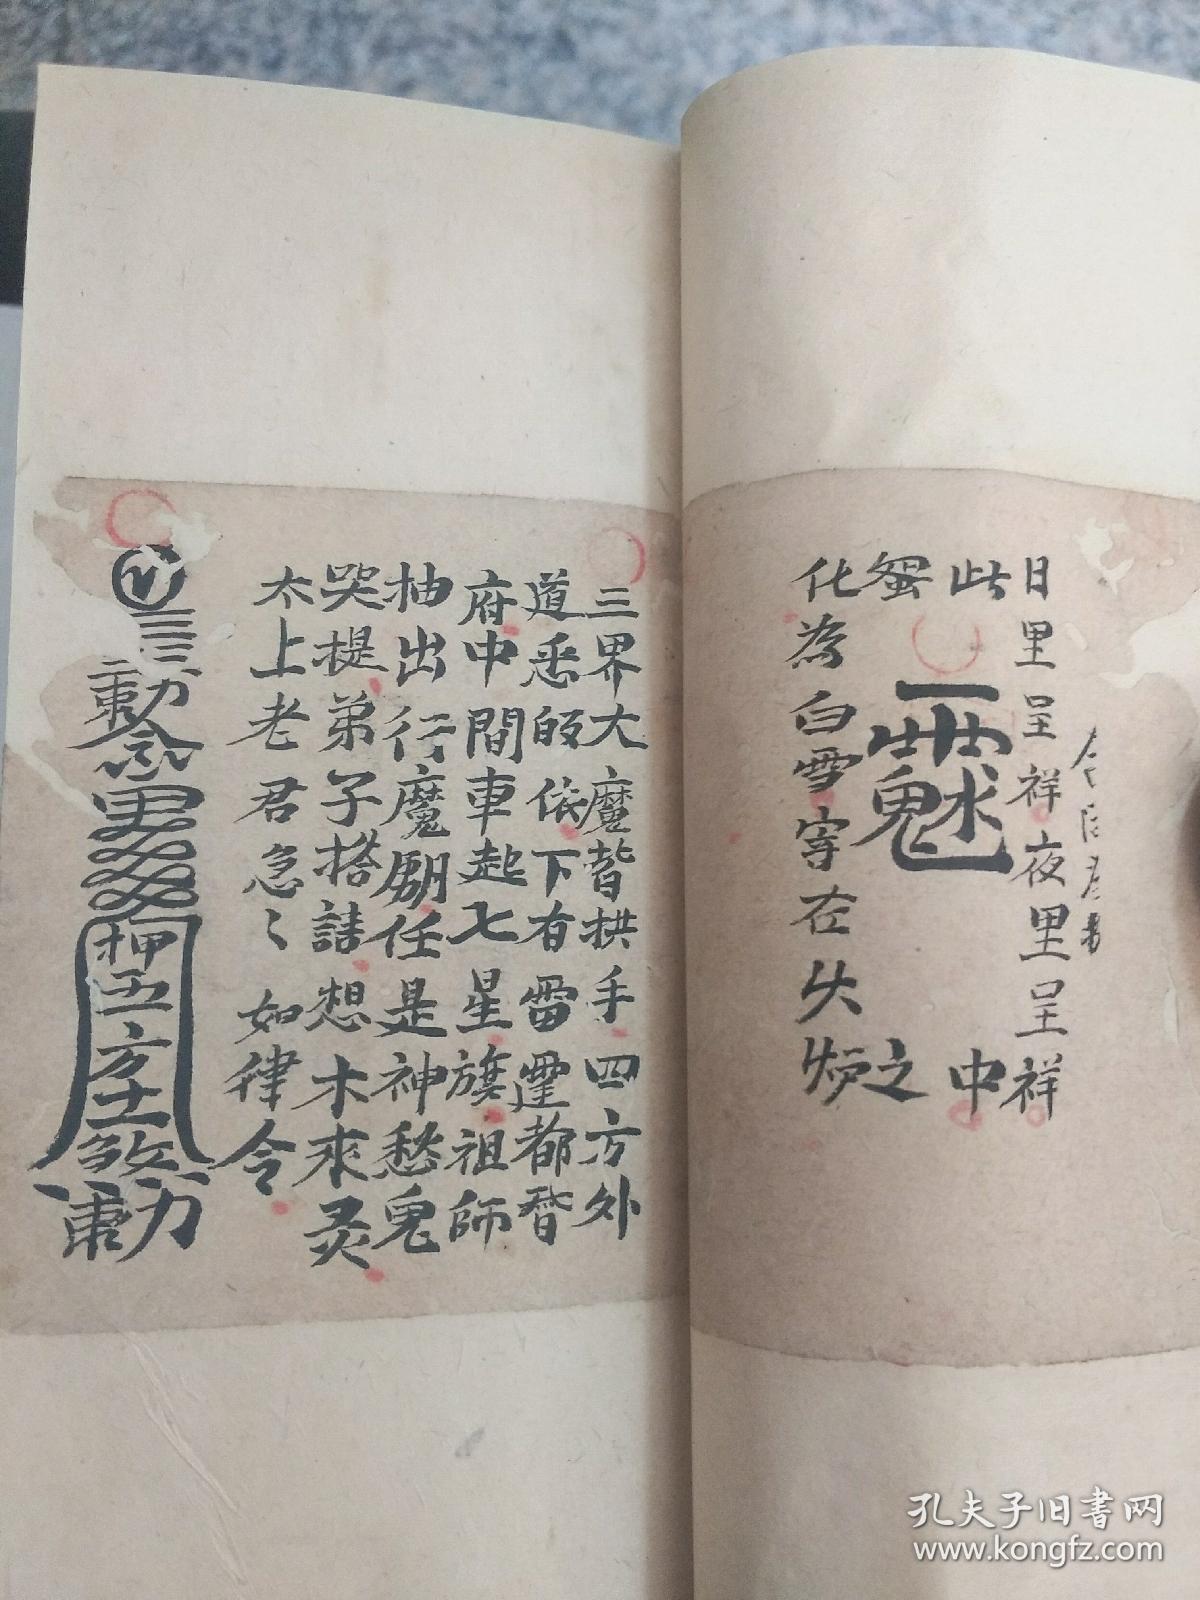 日里呈祥夜里呈祥
此 中
蛪 之
化為白雪寄在火炉
三界大魔皆拱手四方外
道悉皈依下有雷霆都督
府中間車起七星旗祖師
抽出行魔劂任是神愁鬼
哭提弟子搭請想木來灵
太上老君急〻如律令
勅令
押五方土煞
勅
孔夫子旧书网
www.kongfz.com